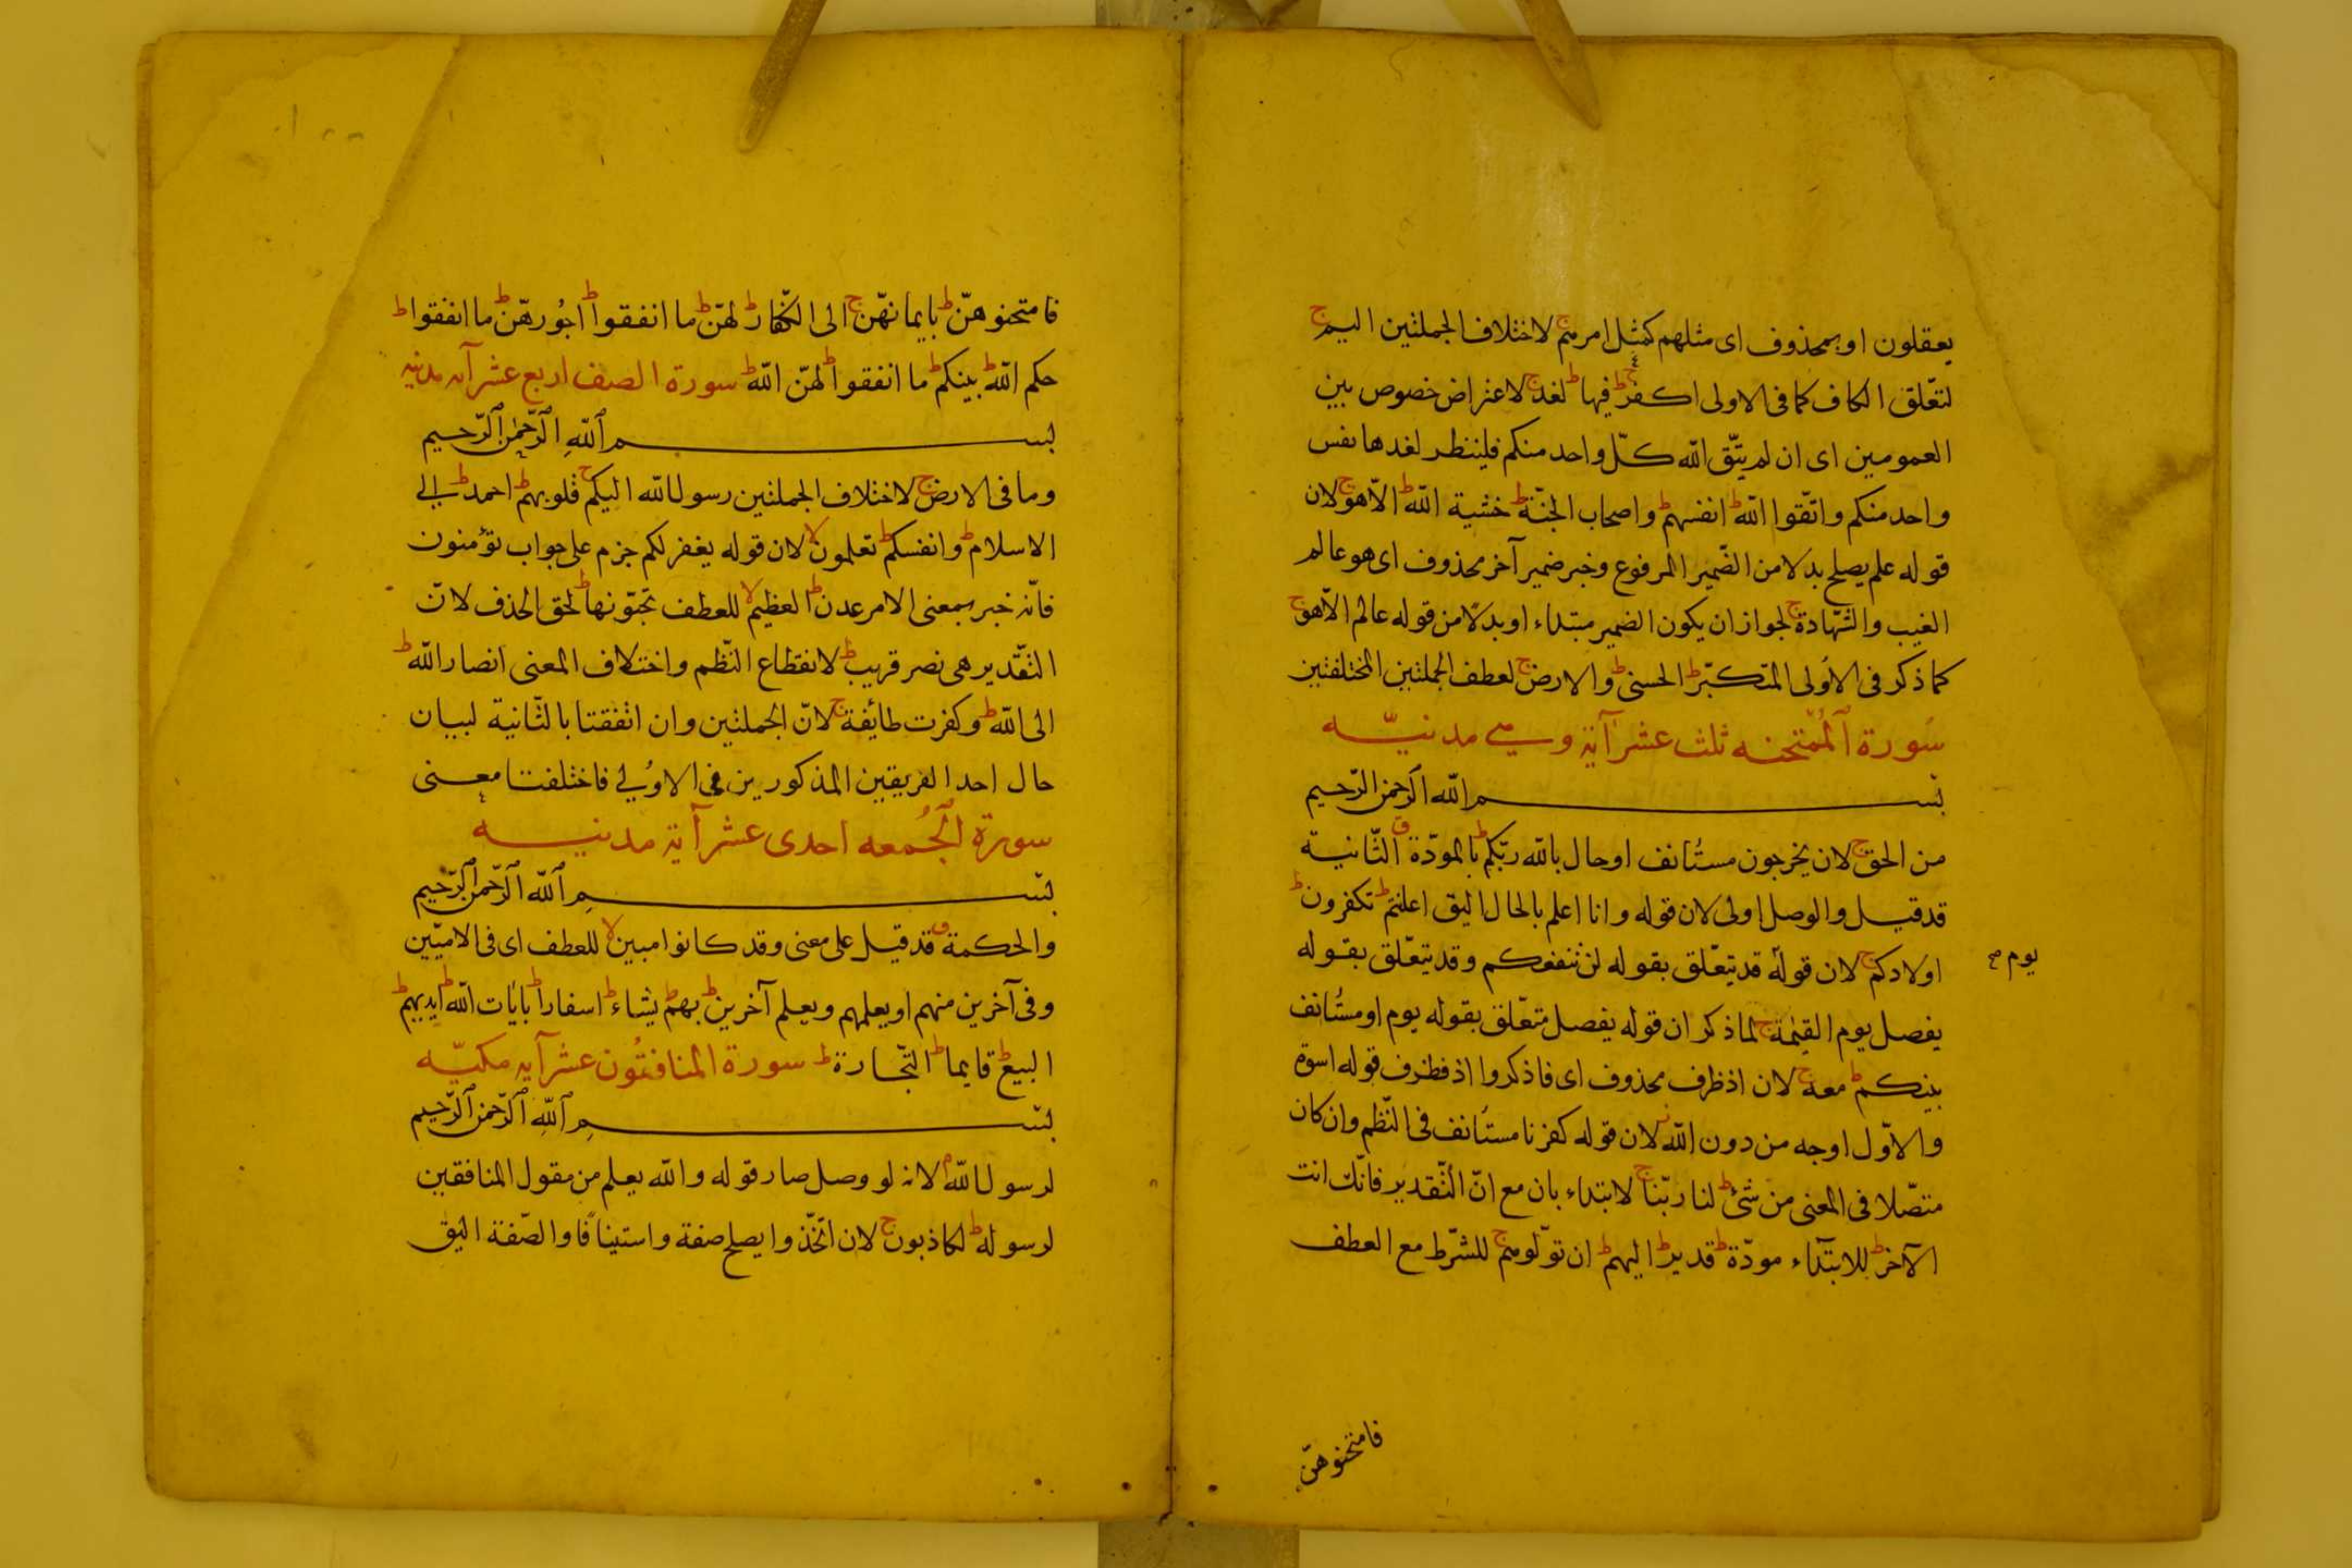 يعقلون او بمحذوف اى مثلهم كمثل امرهم ج لاختلاف الجملتين اليم ج
لتعّلق الكاف كما فى الاولى اكفر ج فيها ط لغد ج لاعتراض خصوص بين
العمومين اى ان لم يتّق الله كلّ واحد منكم فلينظر لغدها نفس
واحد منكم واتّقوا الله ط انفسهم ط واصحاب الجنّة ط خشية الله ط الّا هو ج لان
قوله علم يصلح بدلا من الضّمير المرفوع وخبر ضمير آخر محذوف اى هو عالم
الغيب والشّهادة ج لجواز ان يكون الضمير مبتداء او بدلًا من قوله عالم الّا هو ج
كما ذكر فى الاُولى المتكبّر ط الحسنى ط والارض ج لعطف الجملتين المختلفتين
سورة الممتحنه ثلث عشر آية وهي مدنيّه
بسم الله الرحمن الرّحيم
من الحق ج لان يخرجون مستأنف او حال بالله ربّكم ط بالمودّة ق الثّانية
قد قيل والوصل اولى لان قوله وانا اعلم بالحال اليق اعلنتم ط تكفرون ط
اولادكم ج لان قوله قد يتعّلق بقوله لن تنفعكم وقد يتعّلق بقوله
يوم صح
يفصل يوم القيٰمة ج لما ذكر ان قوله يفصل متعّلق بقوله يوم او مستأنف
بينكم ط معه ج لان اذ ظرف محذوف اى فاذكروا اذ فظرف قوله اسوة
والاوّل اوجه من دون الله ز لان قوله كفرنا مستأنف فى النّظم وان كان
متصّلا فى المعنى من شئ ط لنا ربّنا ج لابتداء بان مع انّ التّقدير فانّك انت
الآخر ط للابتدآء مودّة ط قدير ط اليهم ط ان تولّوهم ج للشّرط مع العطف
فامتحنوهنّ
فامتحنوهنّ ط بايمانهّن ج الى الكفّار ط لهنّ ط ما انفقوا ط اجُورهّن ط ما انفقوا ط
حكم الله ط بينكم ط ما انفقوا ط لهنّ الله ط سورة الصف اربع عشر آيه مدنيه
بسم اللهِ الرّحمٰن الرّحيم
وما فى الارض ج لاختلاف الجملتين رسول الله اليكم ط قلوبهم ط احمد ط الى
الاسلام ط وانفسكم ط تعلمون لا لان قوله يغفر لكم جزم على جواب تؤمنون
فانّه خبر بمعنى الامر عدن ط العظيم لا للعطف تحبّونها ط لحق الحذف لانّ
التقّدير هى نصر قريب ط لانقطاع النّظم واختلاف المعنى انصار الله ط
الى الله ط وكفرت طائفة ج لانّ الجملتين وان اتّفقتا بالثّانية لبيان
حال احد الفريقين المذكورين فى الاوُلى فاختلفتا معنى
سورة الجُمعه احدى عشر آية مدنيه
بسم الله الرّحمن الرّحيم
والحكمة ق قد قيل على معنى وقد كانوا مبين لا للعطف اى فى الاميّين
وفى آخرين منهم او يعلمهم ويعلم آخرين ط بهم ط يشاء ط اسفارا ط بآيات الله ط ايديهم ط
البيع ط قايما ط التّجارة ط سورة المنافقُون عشر آيه مكيّه
بسم اللهِ الرّحمن الرّحيم
لرسول الله م لانه لو وصل صار قوله والله يعلم من مقول المنافقين
لرسوله ط لكاذبون ج لان اتّخذوا يصلح صفة واستينافًا والصّفة اليق